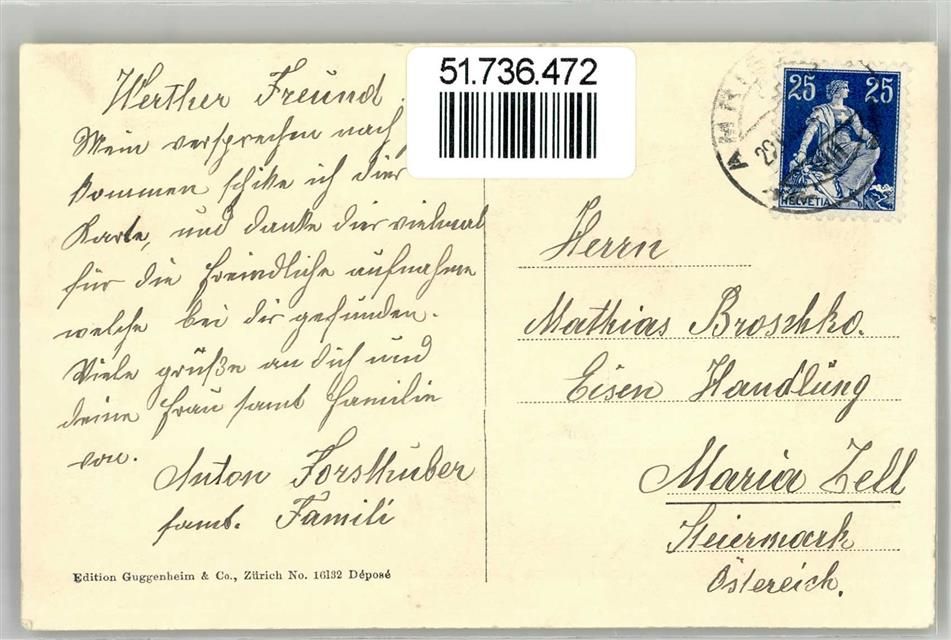 51.736.472
25 25
HELVETIA
AMRIS
Werther Freund.
Mein versprechen nach
kommen schike ich dier
Karte, und danke dier vielmal
für die freindliche aufnahme
welche bei dir gefunden.
Viele grüße an dich und
deine frau samt familie
von.
Anton Forsthuber
samt. Famili
Herrn
Mathias Broschko.
Eisen Handlüng
Maria Zell
Steiermark
Östereich.
Edition Guggenheim & Co., Zürich No. 16132 Déposé